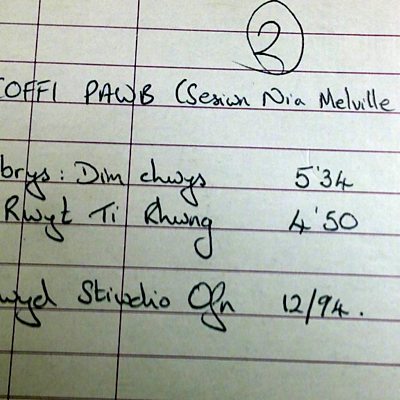 2
COFFI PAWB (Sesiwn Nia Melville
brys: Dim chwys 5'34
Rwyt Ti Rhwng 4'50
wyd Stiwdio Ofn 12/94.